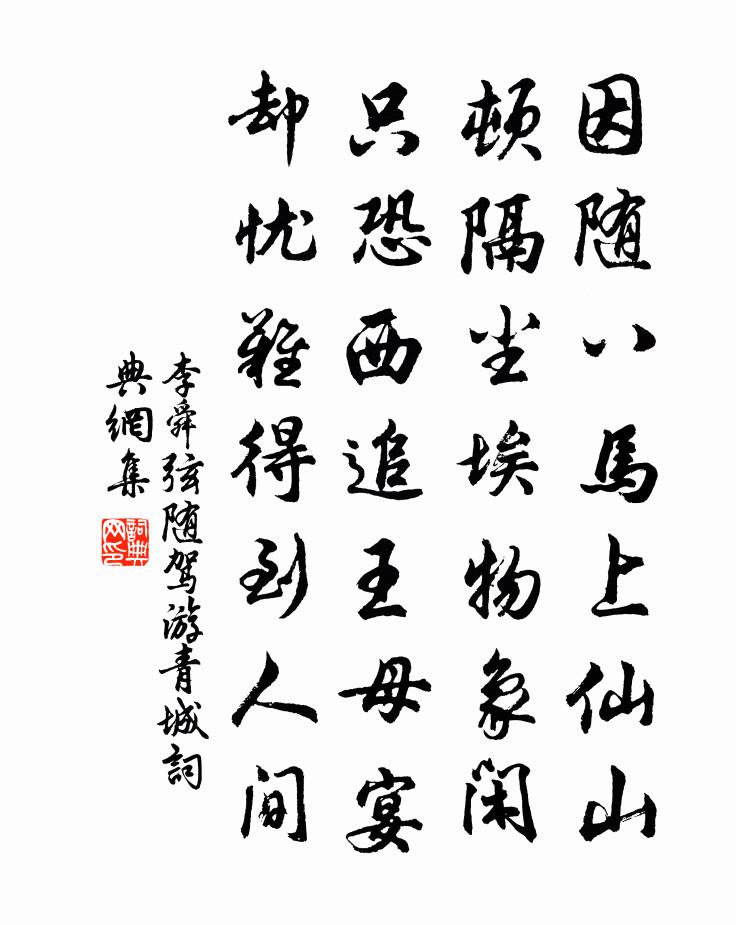 因随八马上仙山
顿隔尘埃物象闲
只恐西追王母宴
却忧难得到人间
李舜弦随驾游青城詞
典網集
詞典网印